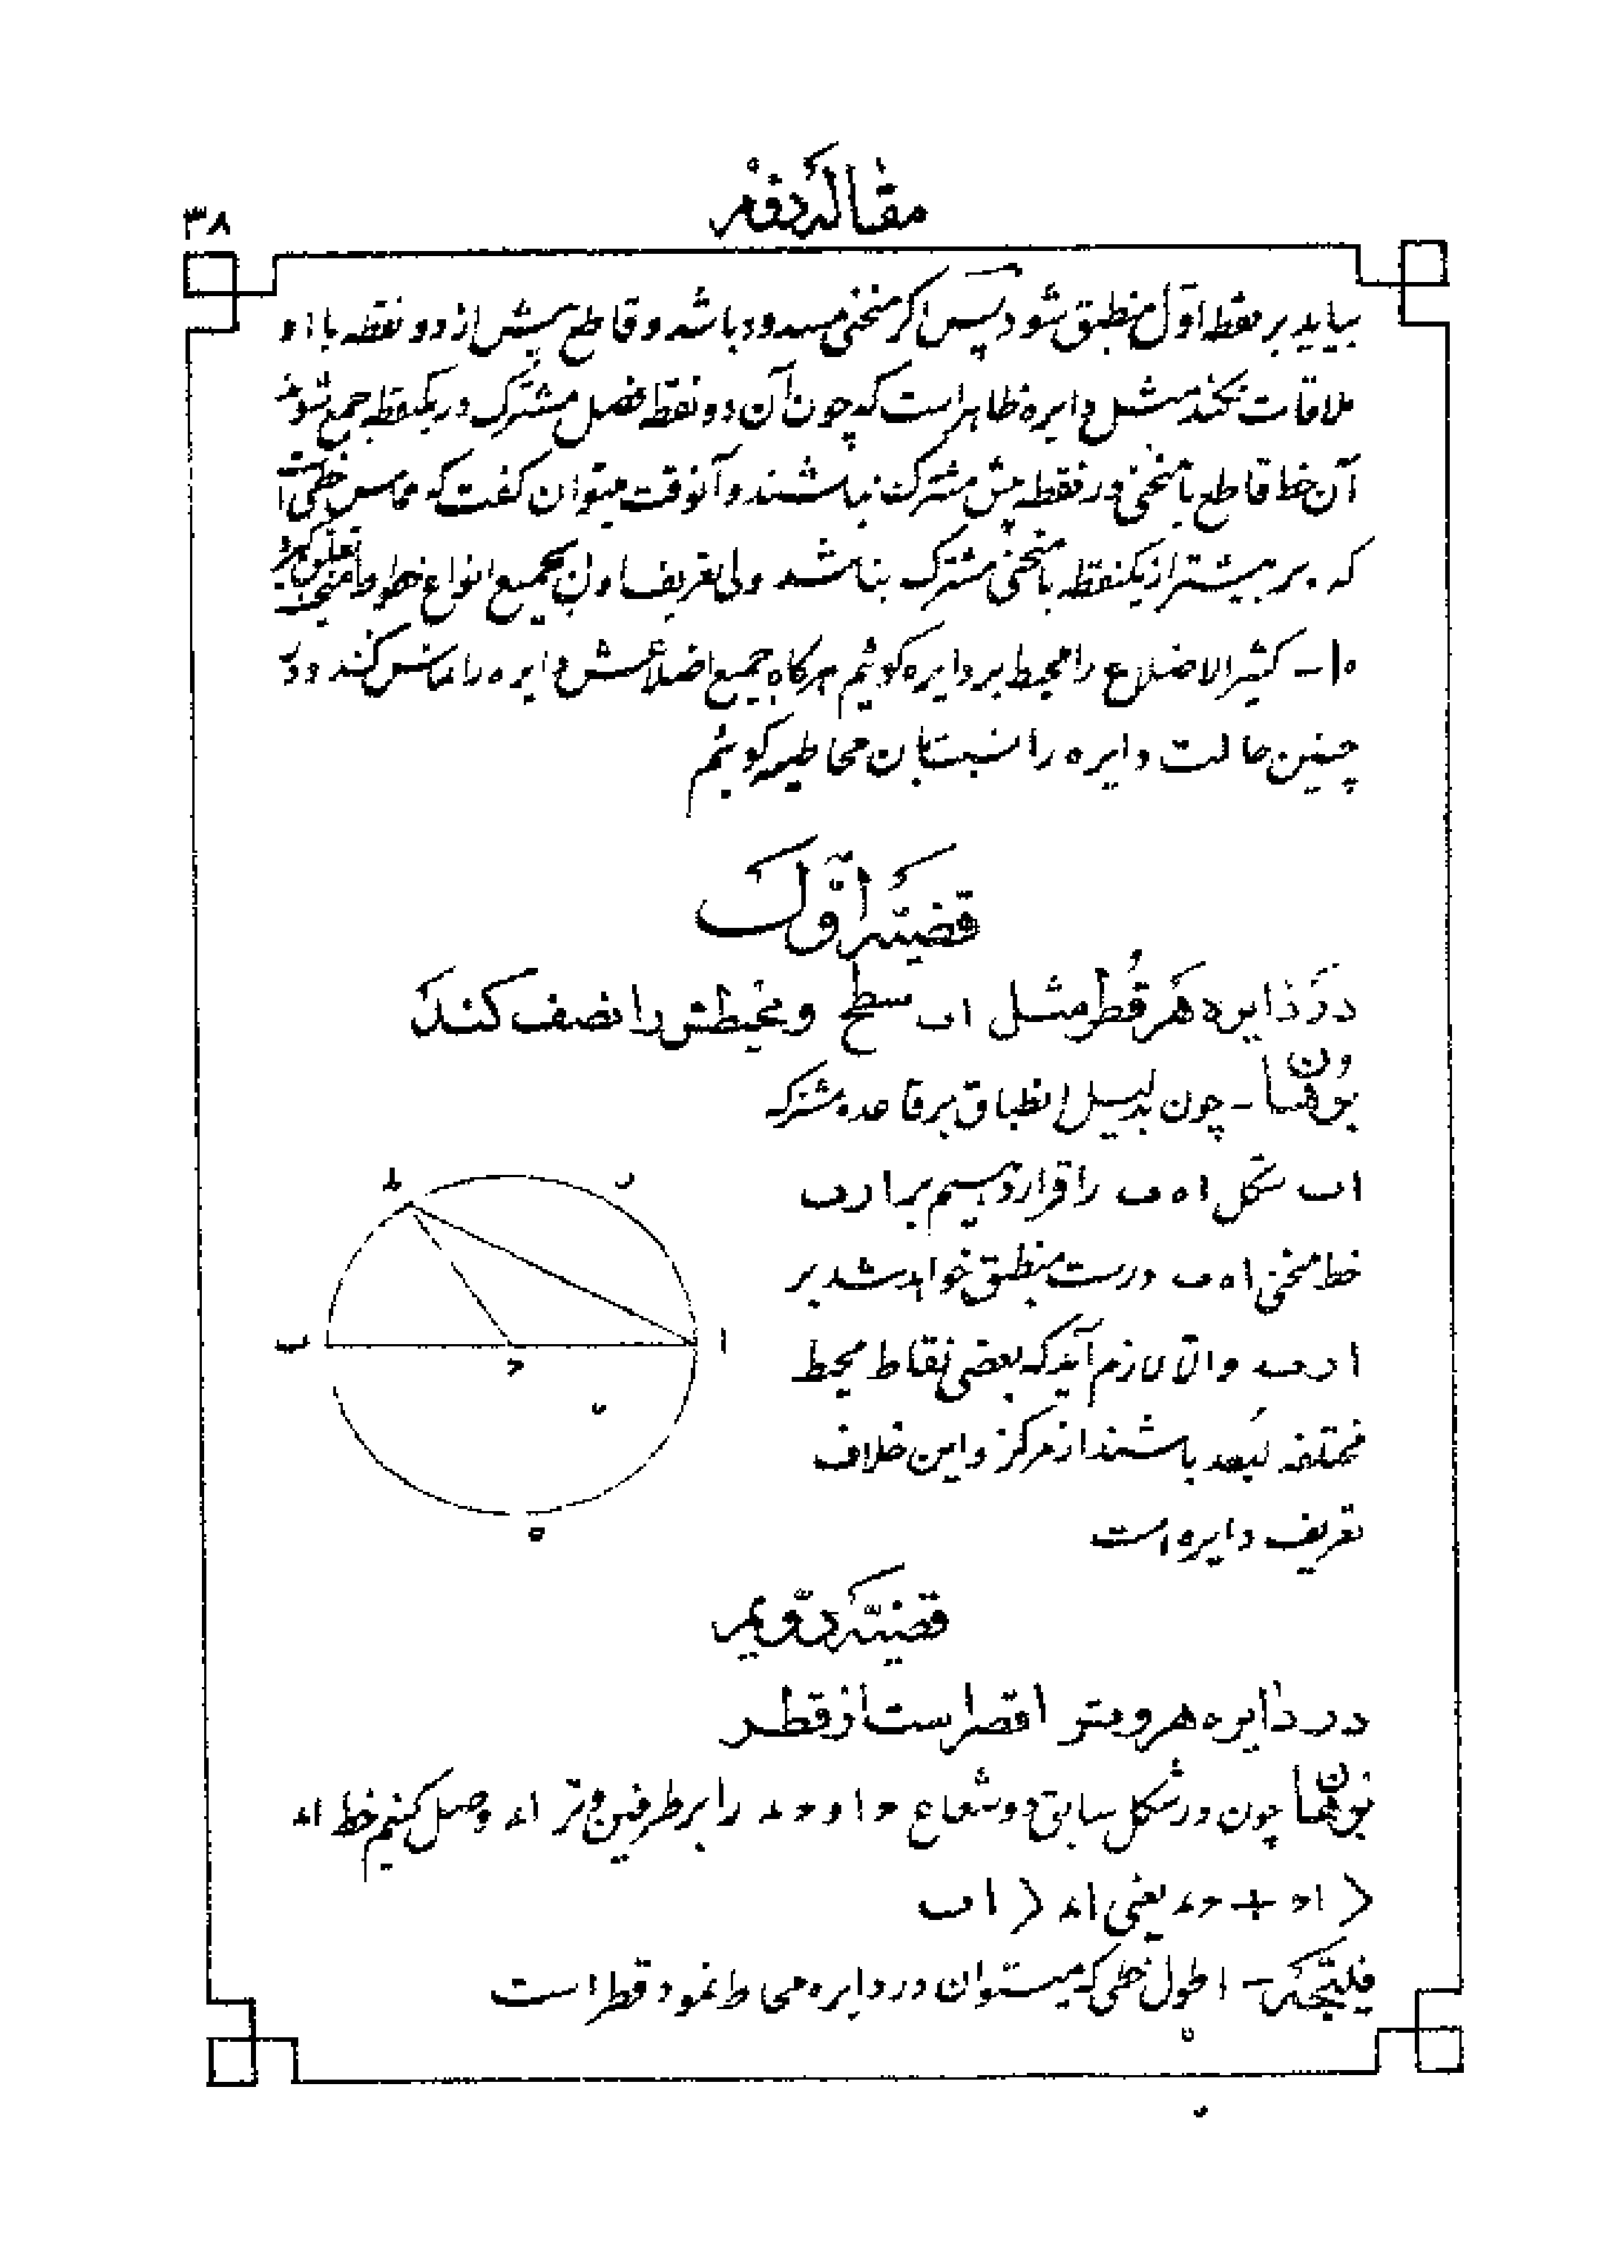 مقاله دویم
۳۸
بیاید بر نقطه اوّل منطبق شود پس اگر منحنی مسدود باشد و قاطع بیش از دو نقطه با او
ملاقات نکند مثل دایره ظاهر است که چون آن دو نقطه فصل مشترک در یکنقطه جمع شوند
آن خط قاطع با منحنی در نقطه بیش مشترک نباشند و آنوقت میتوان گفت که مماس خطی است
که بر بیشتر از یکنقطه با منحنی مشترک نباشد ولی تعریف اول بجمیع انواع خطوط منحنیه تعلق گیرد
۱۰ - کثیر الاضلاع را محیط بر دایره گوئیم هرگاه جمیع اضلاعش دایره را مماس کنند و در
چنین حالت دایره را نسبت بآن محاطیه گوئیم
قضیّه اوّل
در دایره هر قطر مثل اب سطح و محیطش را نصف کند
برهان - چون بدلیل انطباق بر قاعده مشترکه
اب شکل اهب را قرار دهیم بر ارب
خط منحنی اهب درست منطبق خواهد شد بر
ارب والّا لازم آید که بعضی نقاط محیط
مختلفة البعد باشند از مرکز و این خلاف
تعریف دایره است
ط
ر
ب
ا
ح
ه
قضیّه دویم
در دایره هر وتر اقصر است از قطر
برهان چون در شکل سابق دو شعاع حا و حط را بر طرفین وتر اط وصل کنیم خط اط
< اح + حط یعنی اط < اب
نتیجه - اطول خطی که میتوان در دایره محاط نمود قطر است